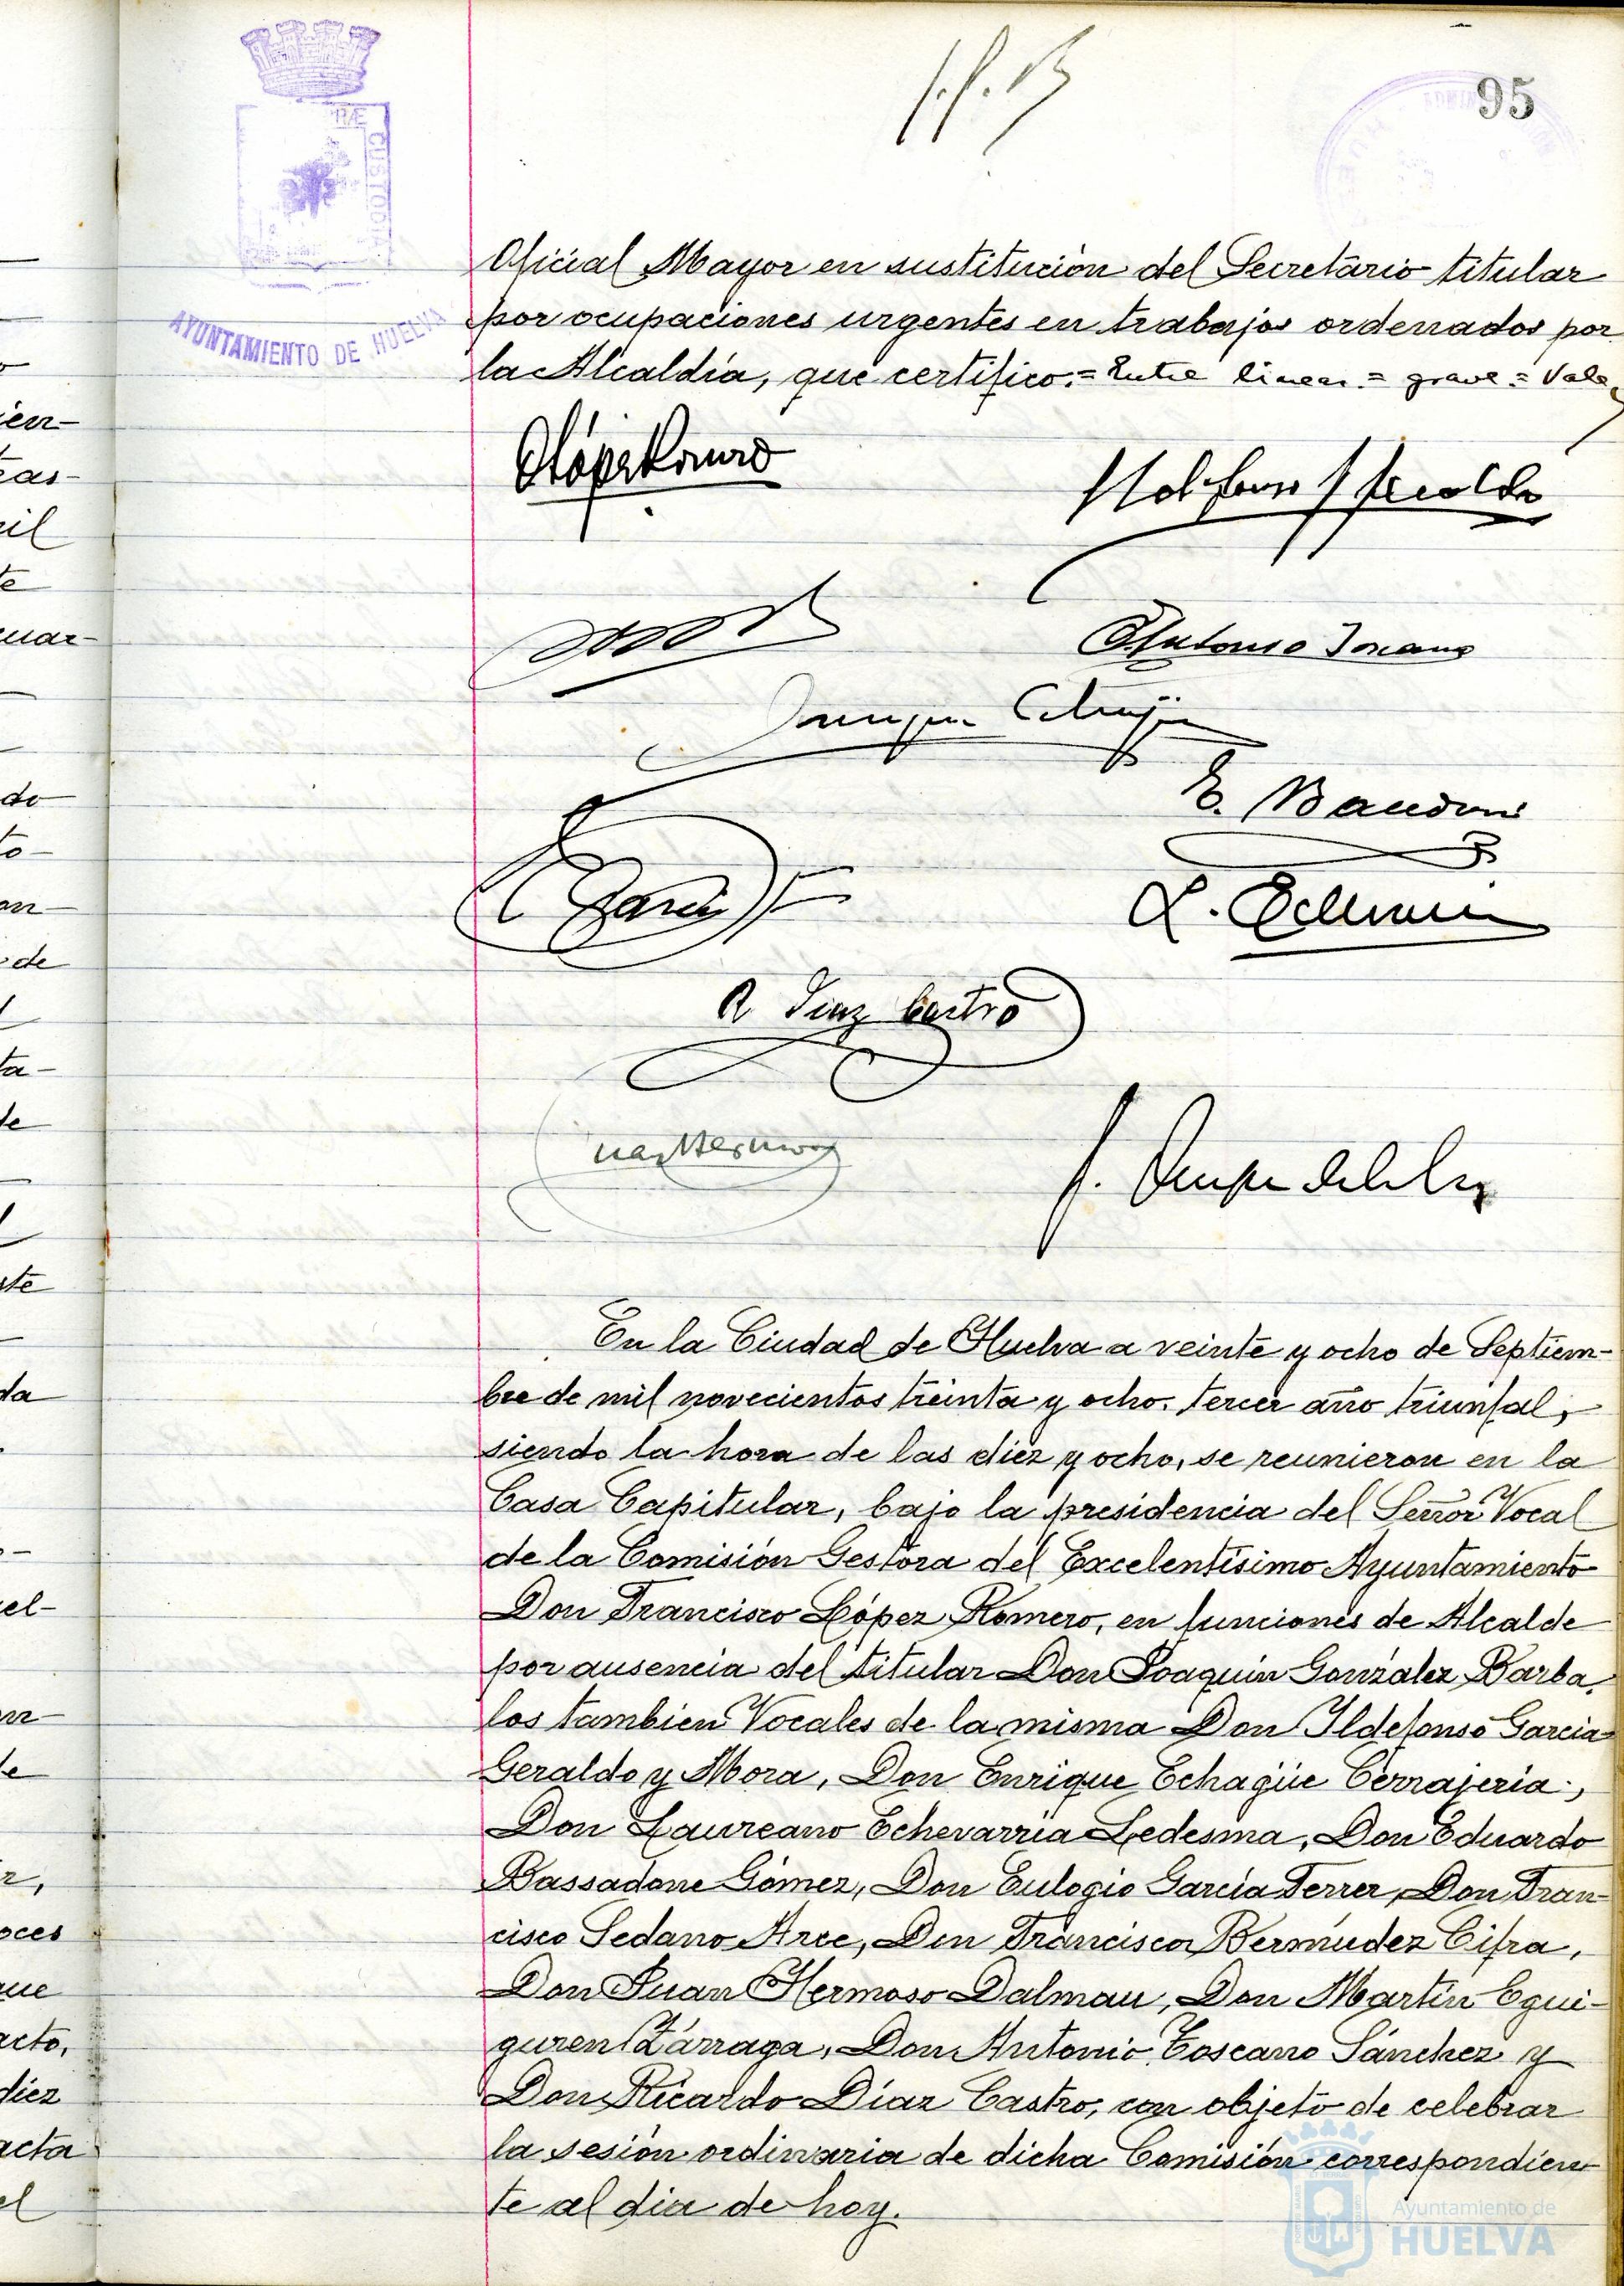 95
PORTÆ CUSTODIA
AYUNTAMIENTO DE HUELVA
Oficial Mayor en sustitución del Secretario titular
por ocupaciones urgentes en trabajos ordenados por
la Alcaldía, que certifico.= Entre lineas.= grave.= Vale
E. Bassadone
García
R Diaz Castro
En la Ciudad de Huelva a veinte y ocho de Septiem-
bre de mil novecientos treinta y ocho. tercer año triunfal,
siendo la hora de las diez y ocho, se reunieron en la
Casa Capitular, bajo la presidencia del Señor Vocal
de la Comisión Gestora del Excelentísimo Ayuntamiento
Don Francisco López Romero, en funciones de Alcalde
por ausencia del titular Don Joaquín González Barba,
los tambien Vocales de la misma Don Ildefonso Garcia
Geraldo y Mora, Don Enrique Echagüe Cerrajeria,
Don Laureano Echevarría Ledesma, Don Eduardo
Bassadone Gómez, Don Eulogio García Ferrer, Don Fran-
cisco Sedano Arce, Don Francisco Bermúdez Cifra,
Don Juan Hermoso Dalmau, Don Martín Egui-
guren Zárraga, Don Antonio Toscano Sánchez y
Don Ricardo Díaz Castro, con objeto de celebrar
la sesión ordinaria de dicha Comisión correspondien-
te al dia de hoy.
Ayuntamiento de
HUELVA